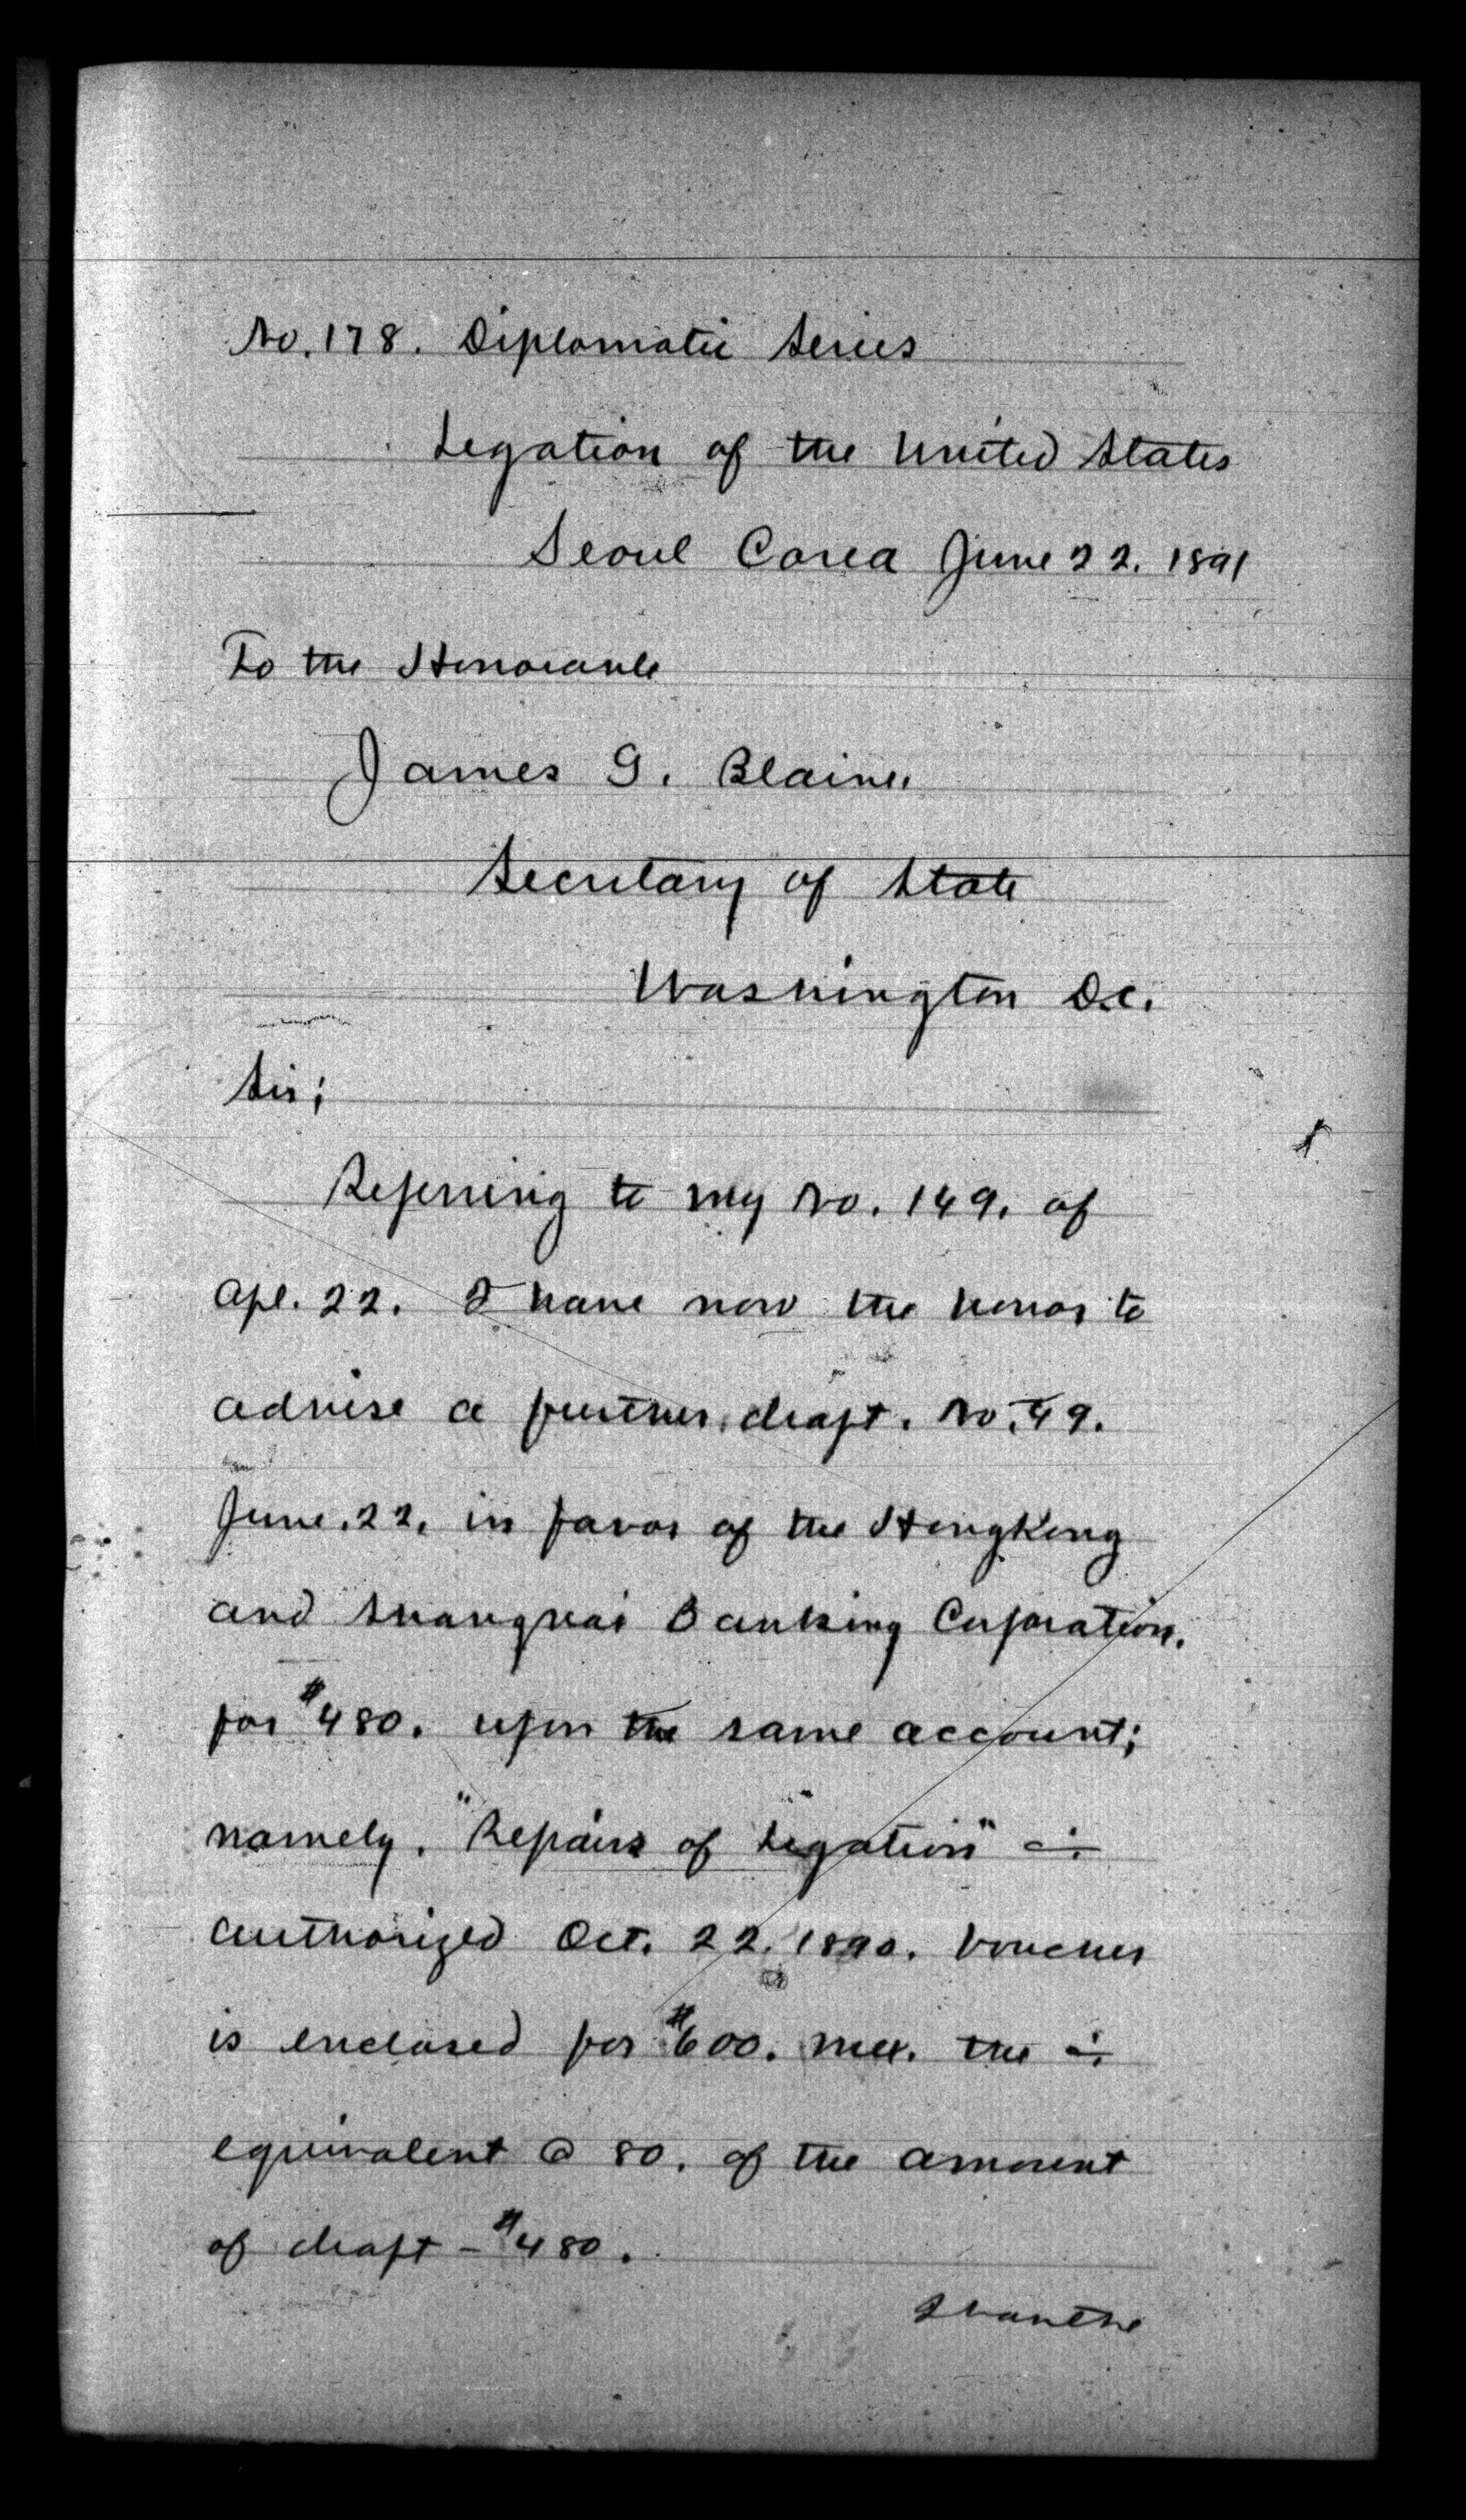 No. 178. Diplomatic Series
Legation of the United States
Seoul Corea June 22. 1891
To the Honorable
James G. Blaine,
Secretary of State
Washington D.C.
Sir;
Referring to my No. 149. of
Apl. 22. I have now the honor to
advise a further draft. No. 49.
June. 22. in favor of the HongKong
and Shanghai Banking Corporation.
for $480. upon the same account;
namely. "Repairs of Legation"
authorized Oct. 22. 1890. Voucher
is enclosed for $600. Mex. the
equivalent @ 80. of the amount
of draft - $480.
I have the